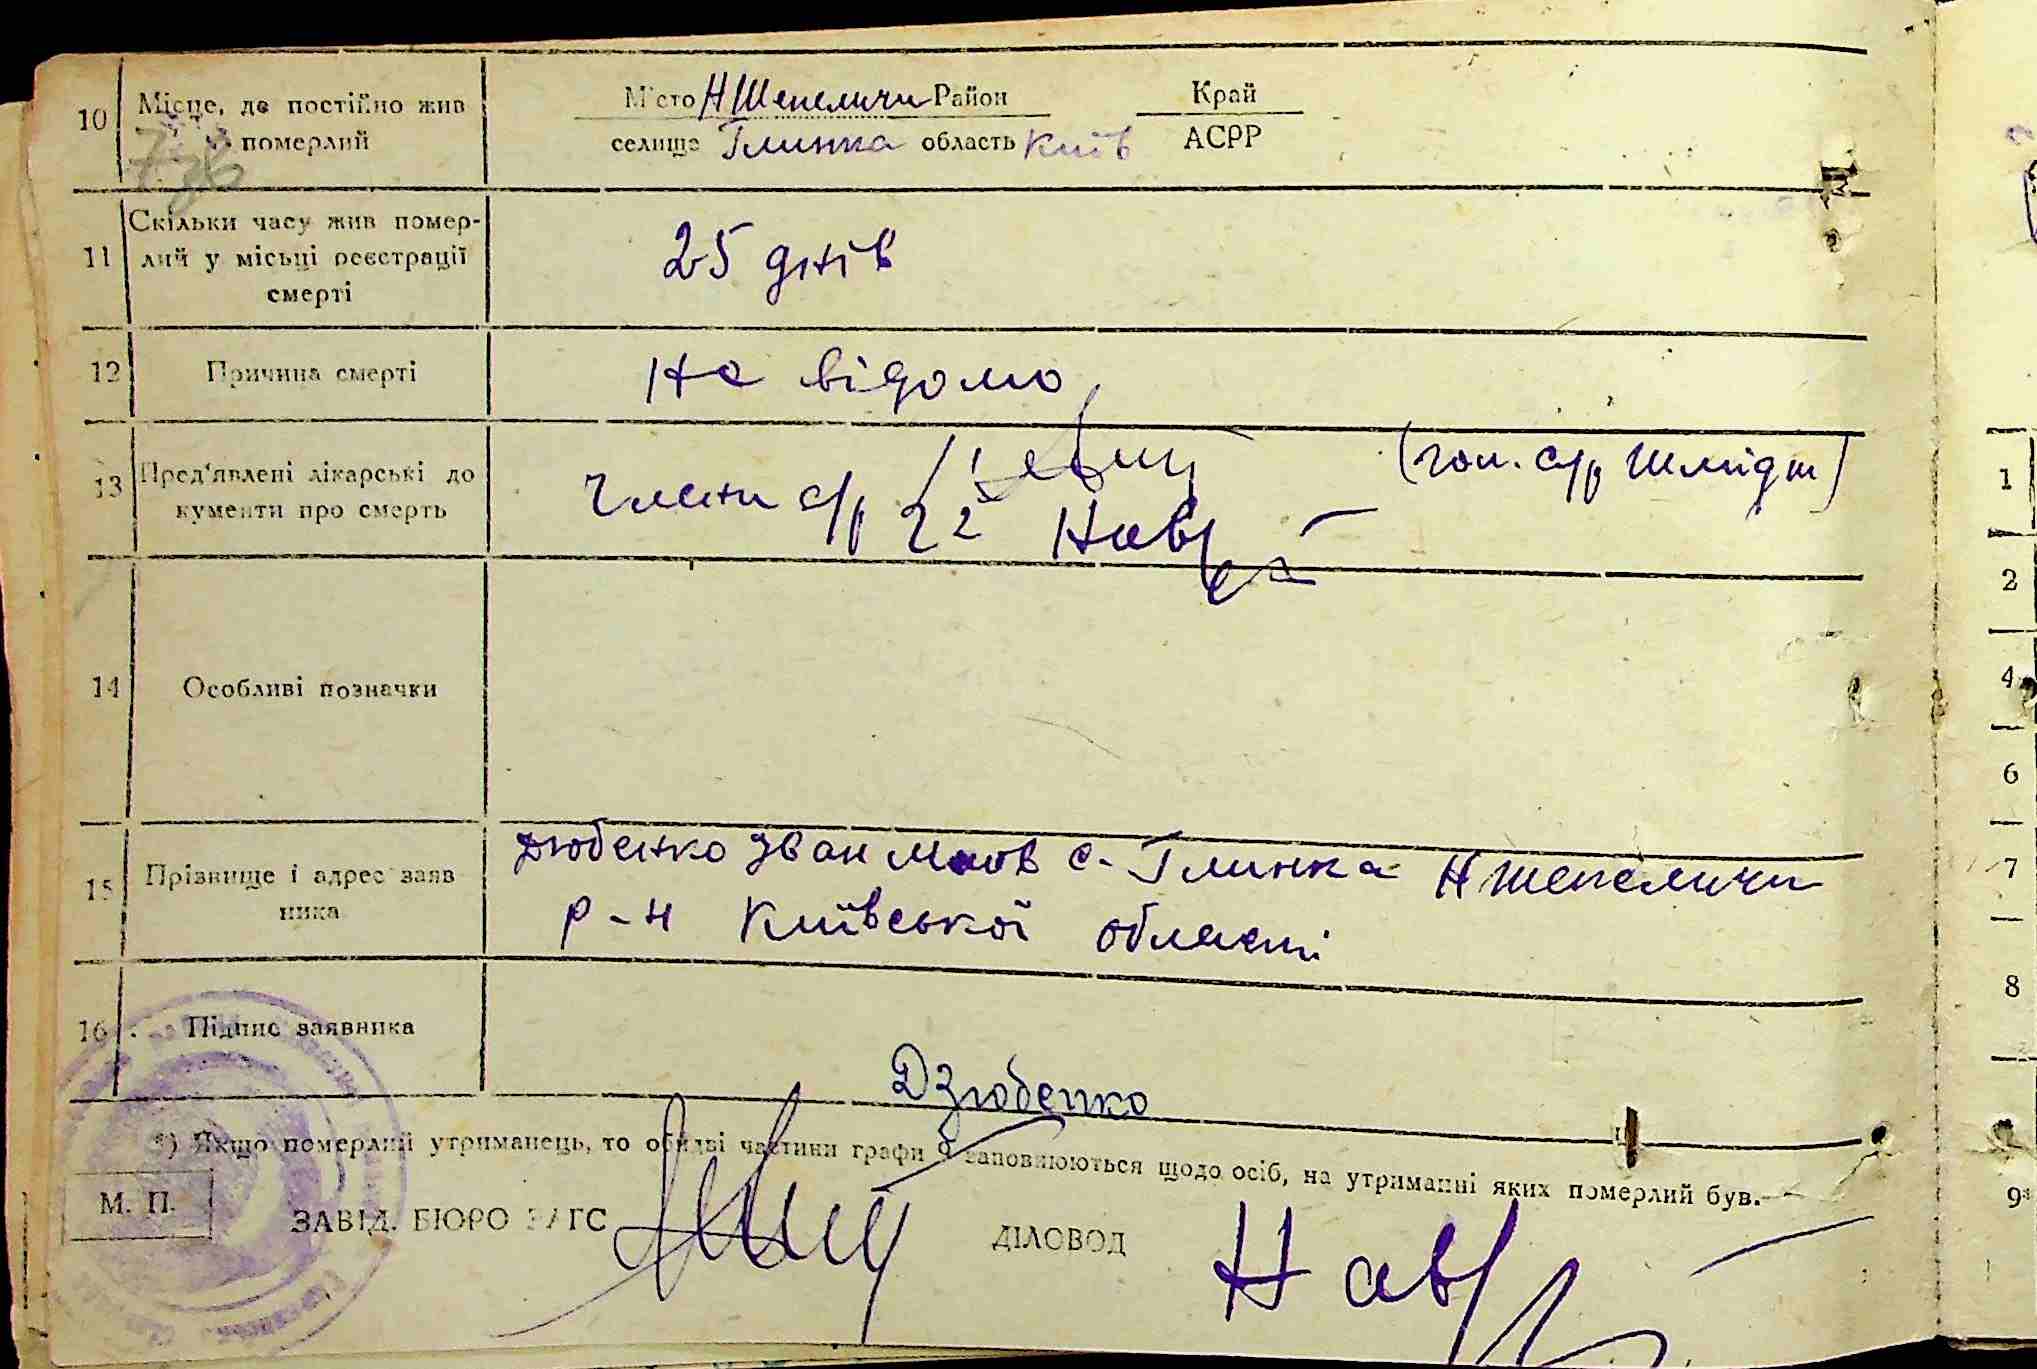 10 Місце, де постійно жив померлий
М'сто Н Шепеличи Район Край
селище Глинка область Київ АСРР
11 Скільки часу жив помер-
лий у місьці реєстрації
смерті
25 днів
12 Причина смерті
не відомо
13 Пред'явлені лікарські до
кументи про смерть
Члени с/р (гол. с/р Шмідт)
14 Особливі позначки
15 Прізвище і адрес заяв
ника
Дзюбенко Іван с. Глинка Н Шепеличи
р-н Київської області
16 Підпис заявника
Дзюбенко
*) Якщо померлий утриманець, то обидві частини графи 9 заповнюються щодо осіб, на утриманні яких померлий був.
М. П.
ЗАВІД. БЮРО ЗАГС
ДІЛОВОД
1
2
4
6
7
8
9